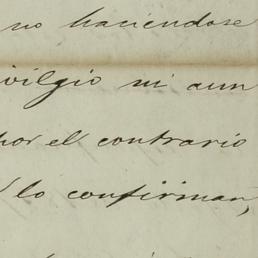 no haciendose
vilgio ni aun
por el contrario
lo confirman,